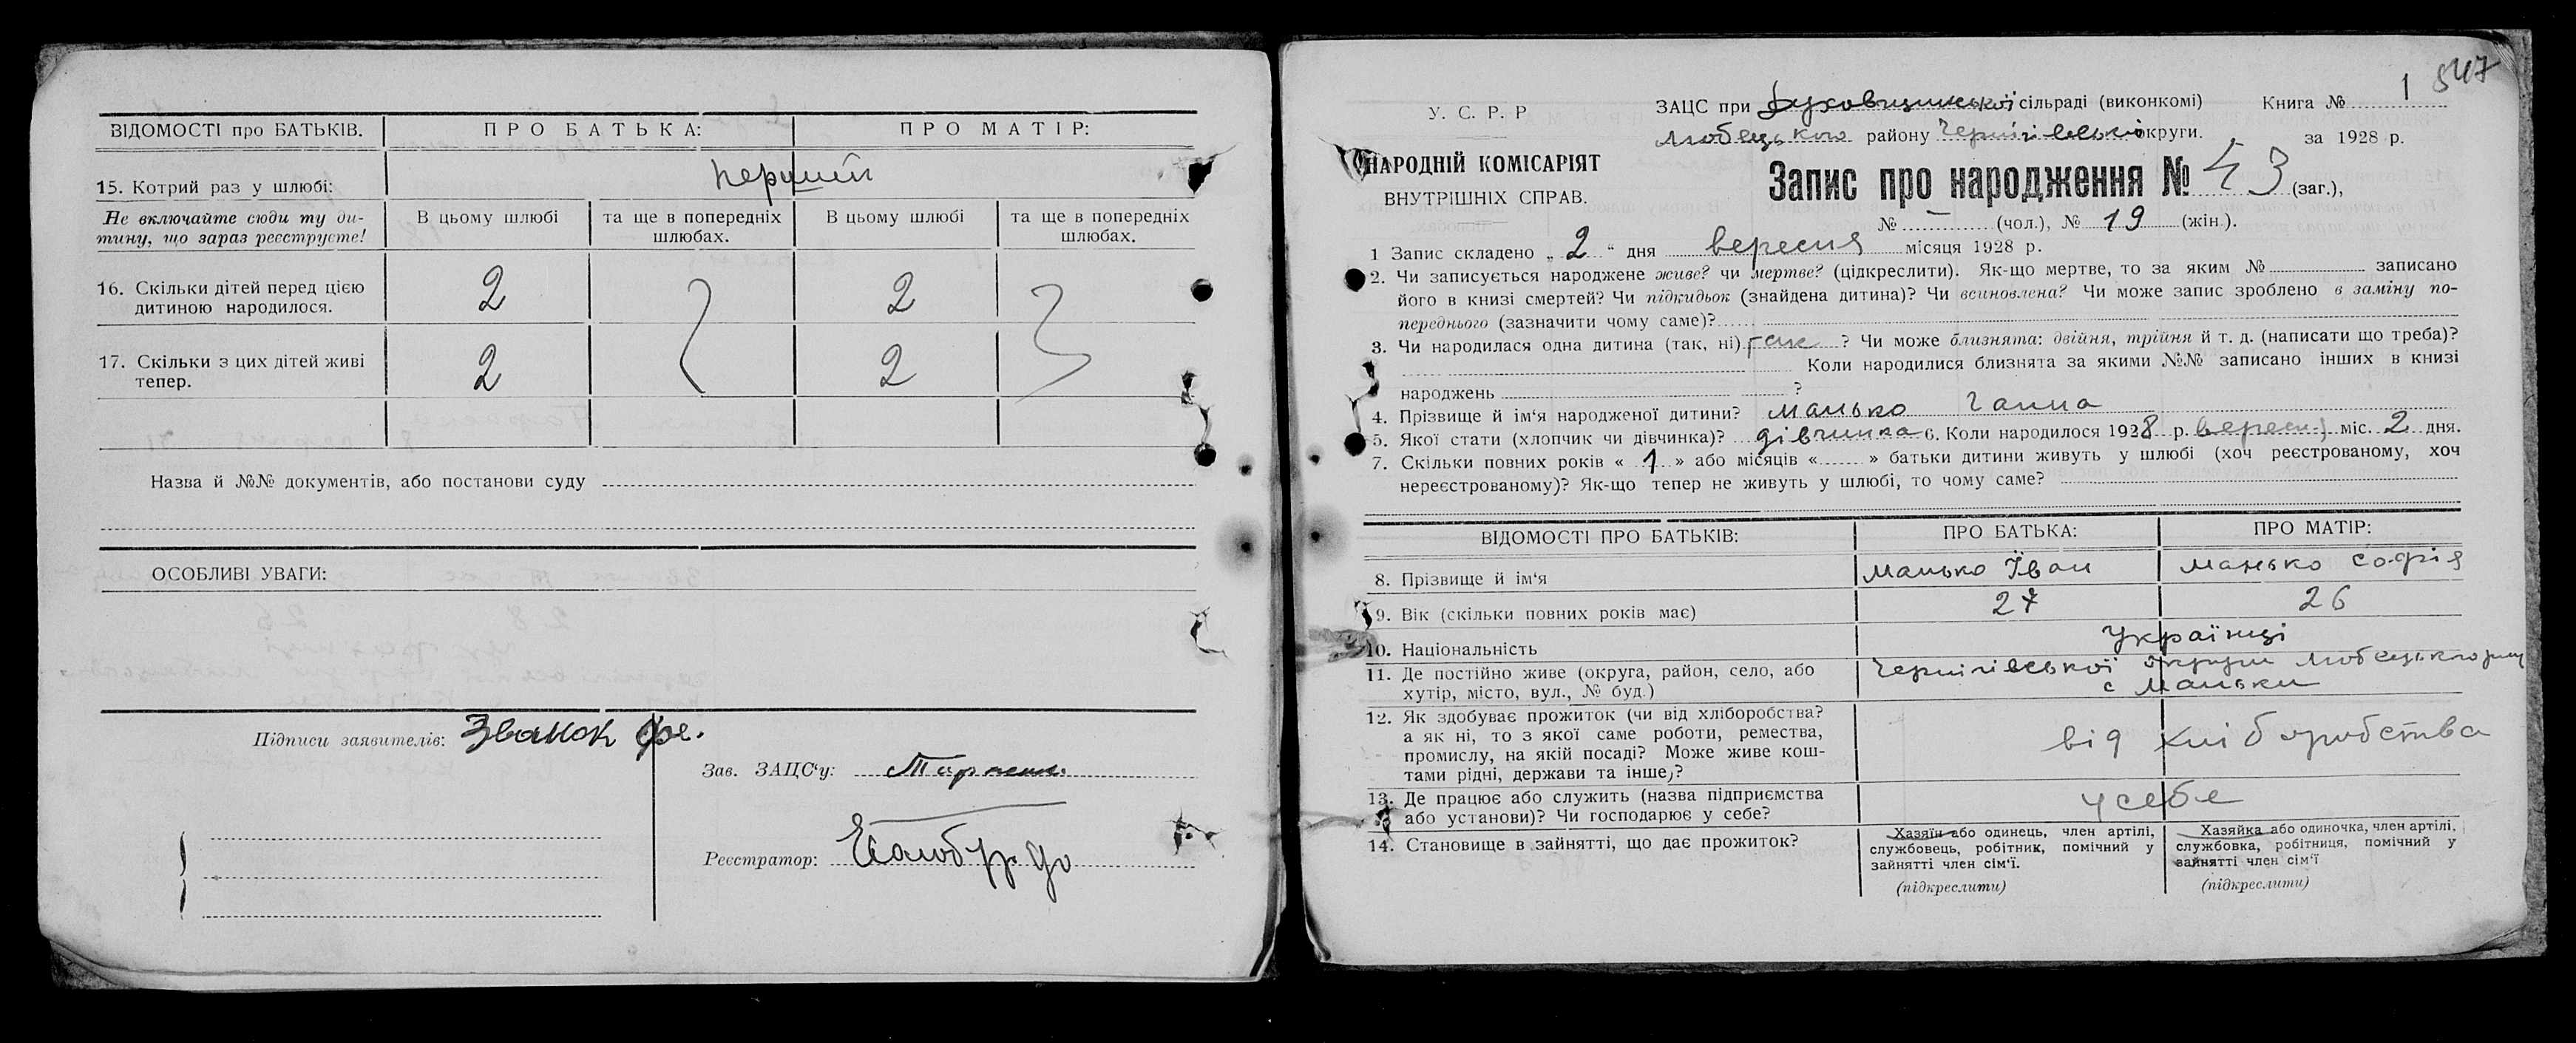 ВІДОМОСТІ про БАТЬКІВ. ПРО БАТЬКА: ПРО МАТІР:
15. Котрий раз у шлюбі: перший
Не включайте сюди ту ди-
тину, що зараз реєструєте!
В цьому шлюбі та ще в попередніх шлюбах. В цьому шлюбі та ще в попередніх шлюбах.
16. Скільки дітей перед цією 2 2
дитиною народилося.
17. Скільки з цих дітей живі 2 2
тепер.
Назва й №№ документів, або постанови суду
ОСОБЛИВІ УВАГИ:
Підписи заявителів: Званок
Зав. ЗАЦС‘у:
Реєстратор:
1 547
У. С. Р. Р ЗАЦС при сільраді (виконкомі) Книга №
Любецького району Чернігівської округи. за 1928 р.
НАРОДНІЙ КОМІСАРІЯТ
ВНУТРІШНІХ СПРАВ.
Запис про народження № 43 (заг.),
№ – (чол.), № 19 (жін.).
1 Запис складено „ 2 “ дня вересня місяця 1928 р.
2. Чи записується народжене живе? чи мертве? (підкреслити). Як-що мертве, то за яким № записано
його в книзі смертей? Чи підкидьок (знайдена дитина)? Чи всиновлена? Чи може запис зроблено в заміну по-
переднього (зазначити чому саме)?
3. Чи народилася одна дитина (так, ні) так ? Чи може близнята: двійня, трійня й т. д. (написати що треба)?
Коли народилися близнята за якими №№ записано інших в книзі
народжень ?
4. Прізвище й ім‘я народженої дитини? Манько Ганна
5. Якої стати (хлопчик чи дівчинка)? дівчинка 6. Коли народилося 1928 р. вересня міс. 2 дня.
7. Скільки повних років « 1 » або місяців « » батьки дитини живуть у шлюбі (хоч реєстрованому, хоч
нереєстрованому)? Як-що тепер не живуть у шлюбі, то чому саме?
ВІДОМОСТІ ПРО БАТЬКІВ: ПРО БАТЬКА: ПРО МАТІР:
8. Прізвище й ім‘я Манько Іван Манько Софія
9. Вік (скільки повних років має) 27 26
10. Національність Українці
11. Де постійно живе (округа, район, село, або Чернігівської округи Любецького
хутір, місто, вул., № буд.) с Маньки
12. Як здобуває прожиток (чи від хліборобства?
а як ні, то з якої саме роботи, ремества, від хліборобства
промислу, на якій посаді? Може живе кош-
тами рідні, держави та інше)?
13. Де працює або служить (назва підприємства у себе
або установи)? Чи господарює у себе?
14. Становище в зайнятті, що дає прожиток?
Хазяїн або одинець, член артілі,
службовець, робітник, помічний у
зайнятті член сім‘ї.
(підкреслити)
Хазяйка або одиночка, член артілі,
службовка, робітниця, помічний у
зайнятті член сім‘ї
(підкреслити)